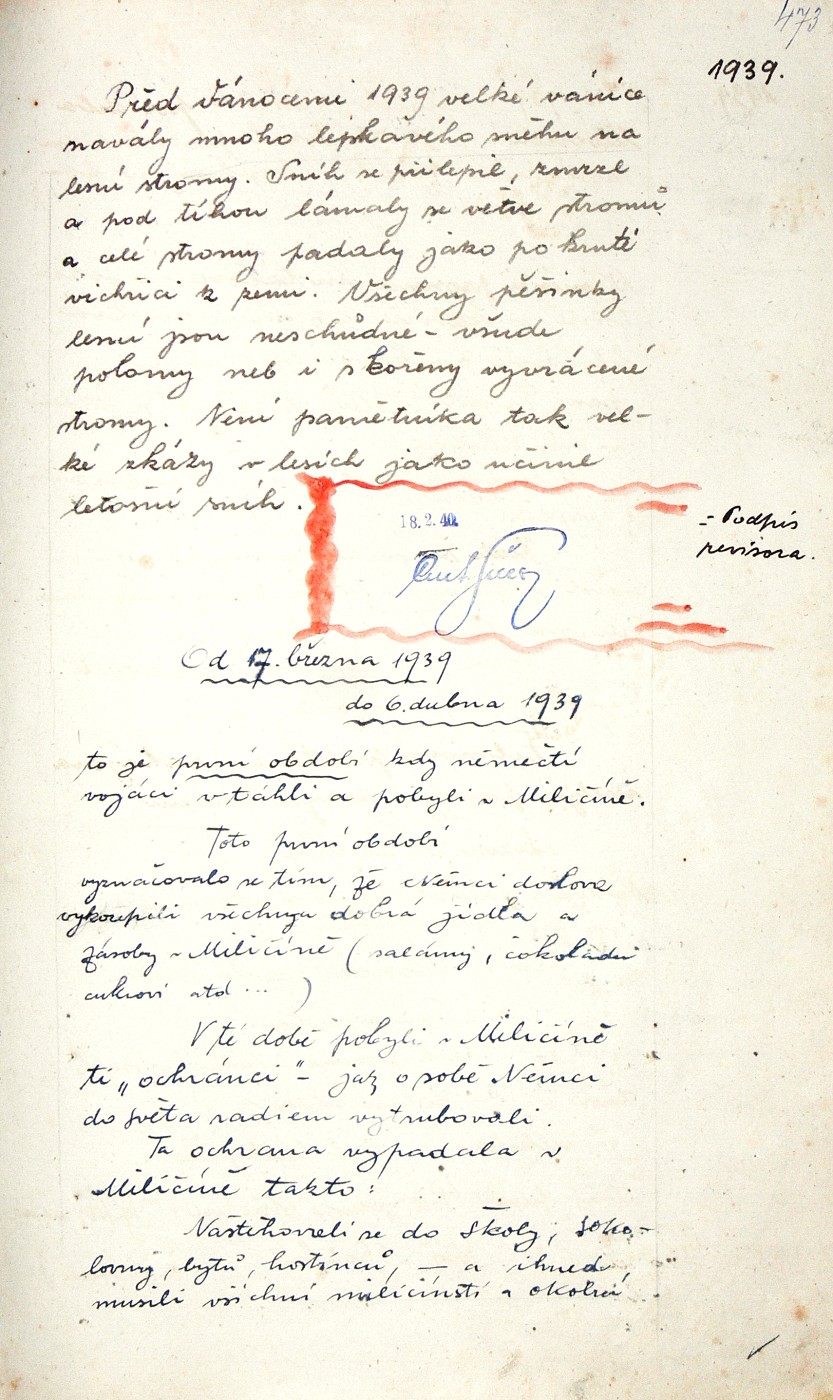 473
1939.
Před vánocemi 1939 velké vánice
navály mnoho lepkavého sněhu na
lesní stromy. Sníh se přilepil, zmrzl
a pod tíhou lámaly se větve stromů
a celé stromy padaly jako po kruté
vichřici k zemi. Všechny pěšinky
lesní jsou neschůdné - všude
polomy neb i s kořeny vyvrácené
stromy. Není pamětníka tak vel-
ké zkázy v lesích jako učinil
letošní sníh.
18.2.40.
= Podpis
revisora.
Od 17. března 1939
do 6. dubna 1939
to je první období kdy němečtí
vojáci vtáhli a pobyli v Miličíně.
Toto první období
vyznačovalo se tím, že Němci doslova
vykoupili všechna dobrá jídla a
zásoby v Miličíně (salámy, čokoládu
cukroví atd ... )
V té době pobyli v Miličíně
ti „ochránci" - jak o sobě Němci
do světa radiem vytrubovali.
Ta ochrana vypadala v
Miličíně takto:
Nastěhovali se do školy, soko-
lovny, bytů, hostinců, — a ihned
musili všichni miličínští a okolní